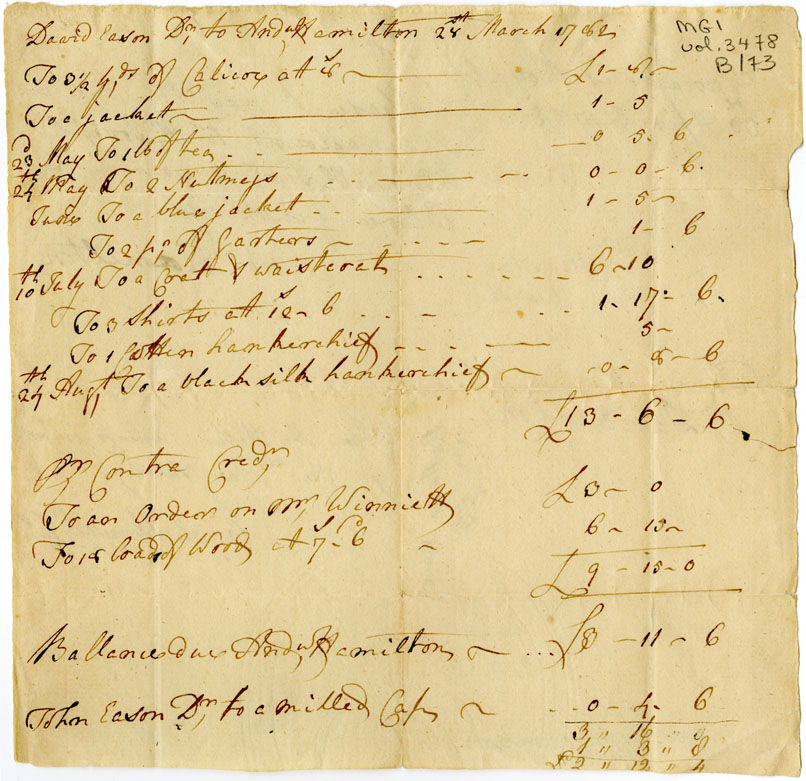 MG1
vol. 3478
B173
David Eason Dr, to Andw Hamilton 28st March 1782
To 3½ yds of Calicoe at 8s ~ £1 - 8 ~
To a jacket ~ 1 - 5
23d May To 1 lb of tea - - 0 5 - 6
24th May To 2 Nutmegs - - 0 - 0 - 6.
June To a blue jacket - - 1 - 5 ~
To 2 pr of Garters ~ - - - - 1 - 6
10th July To a Coatt & waistcoat - - - - 6 ~ 10
To 3 Shirts at 12s - 6 - - - 1 - 17 - 6.
To 1 Cotten hankerchief - - - 5 ~
24th Augt, To a black silk hankerchief ~ 0 - 8 - 6
£13 - 6 - 6
Pr Contra Credr
To an Order on Mr, Winniett £3 ~ 0
To 18 loads of Wood at 7s - 6d ~ 6 ~ 15 ~
£9 - 15 - 0
Ballance due Andw Hamilton ~ ... £3 - 11 - 6
John Eason Dr, to a milled Cap ~ 0 - 4 - 6
3 " 16 " 0
1 " 3 " 8
£2 " 12 " 4